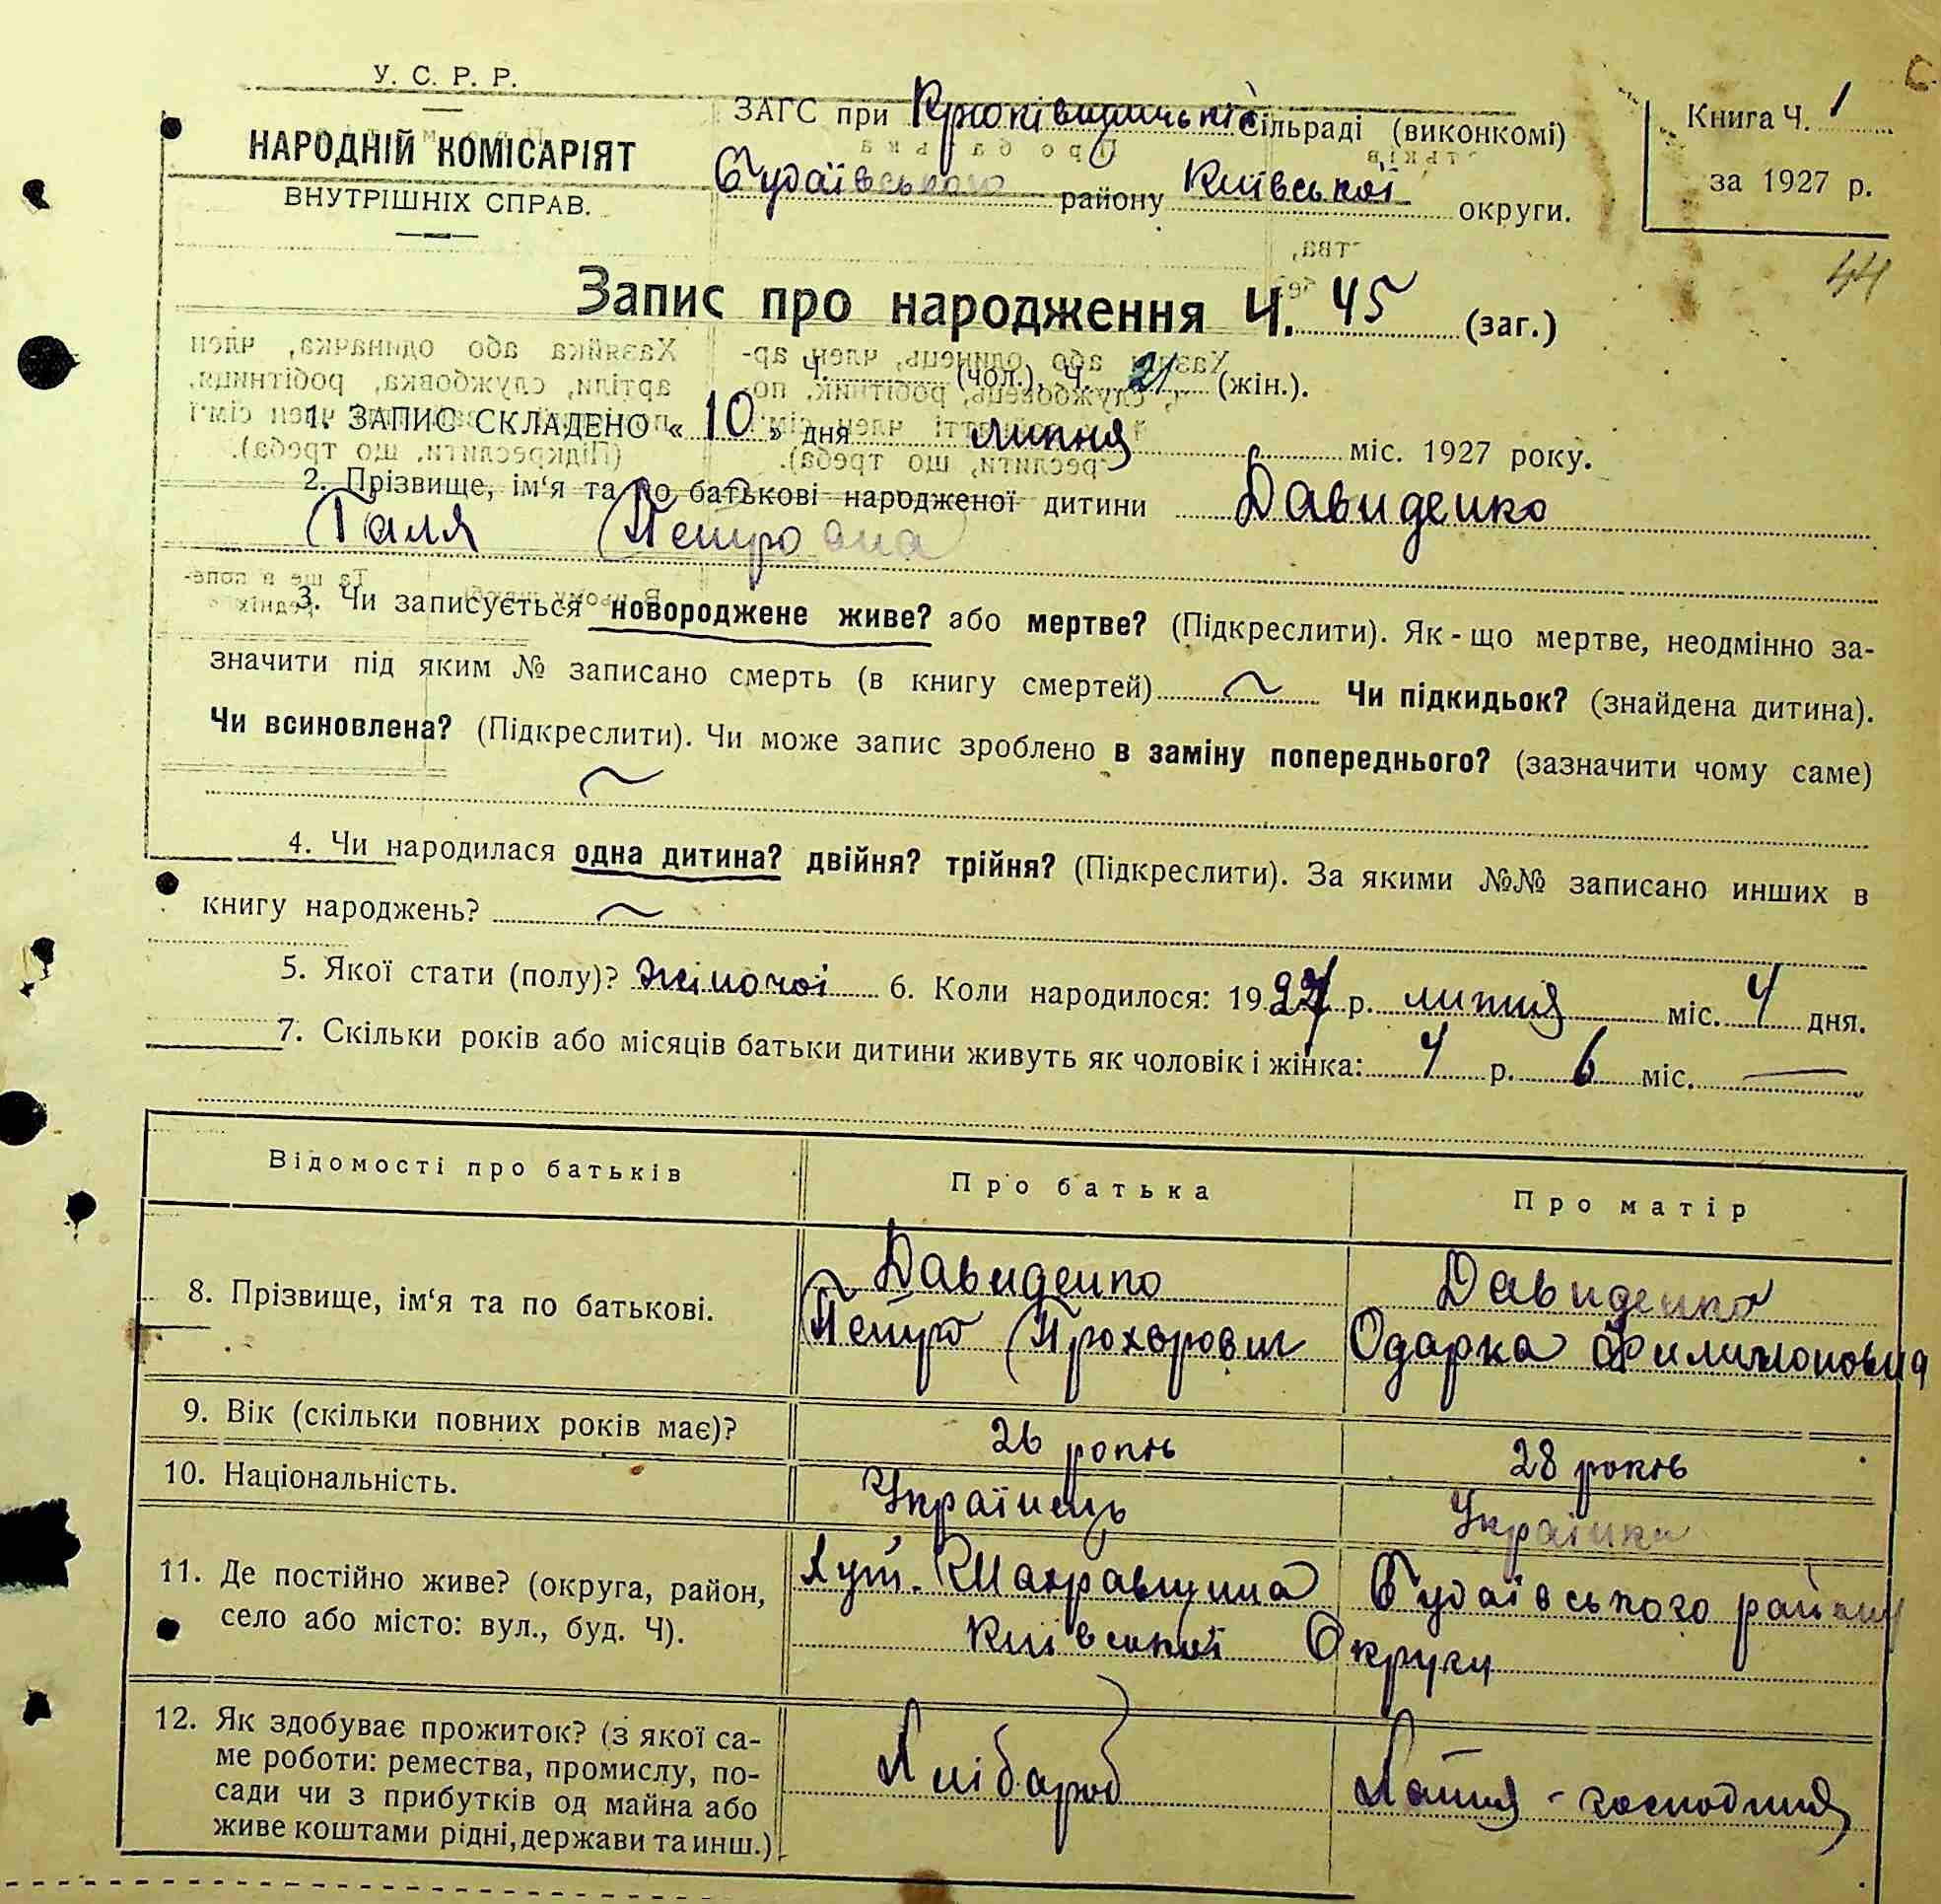 У. С. Р. Р.
НАРОДНІЙ КОМІСАРІЯТ
ВНУТРІШНІХ СПРАВ.
ЗАГС при Крюківщинській сільраді (виконкомі)
Будаївського району Київської округи.
Книга Ч. 1
за 1927 р.
44
Запис про народження Ч. 45 (заг.)
Ч. (чол.), Ч. 21 (жін.).
1. ЗАПИС СКЛАДЕНО « 10 » дня липня міс. 1927 року.
2. Прізвище, ім‘я та по батькові народженої дитини Давиденко
Галя Петровна
3. Чи записується новороджене живе? або мертве? (Підкреслити). Як-що мертве, неодмінно за-
значити під яким № записано смерть (в книгу смертей) Чи підкидьок? (знайдена дитина).
Чи всиновлена? (Підкреслити). Чи може запис зроблено в заміну попереднього? (зазначити чому саме)
4. Чи народилася одна дитина? двійня? трійня? (Підкреслити). За якими №№ записано инших в
книгу народжень?
5. Якої стати (полу)? жіночої 6. Коли народилося: 1927 р. липня міс. 4 дня.
7. Скільки років або місяців батьки дитини живуть як чоловік і жінка: 4 р. 6 міс. —
Відомості про батьків Про батька Про матір
8. Прізвище, ім‘я та по батькові. Давиденко Давиденко
Петро Прохорович Одарка Филимоновна
9. Вік (скільки повних років має)? 26 роківъ 28 роківъ
10. Національність. Українець Українка
11. Де постійно живе? (округа, район, Хут. Шахравщина Будаївського району
село або місто: вул., буд. Ч). Київської Округи
12. Як здобуває прожиток? (з якої са-
ме роботи: ремества, промислу, по-
сади чи з прибутків од майна або
живе коштами рідні, держави та инш.)
Хлібароб Хатня - господиня